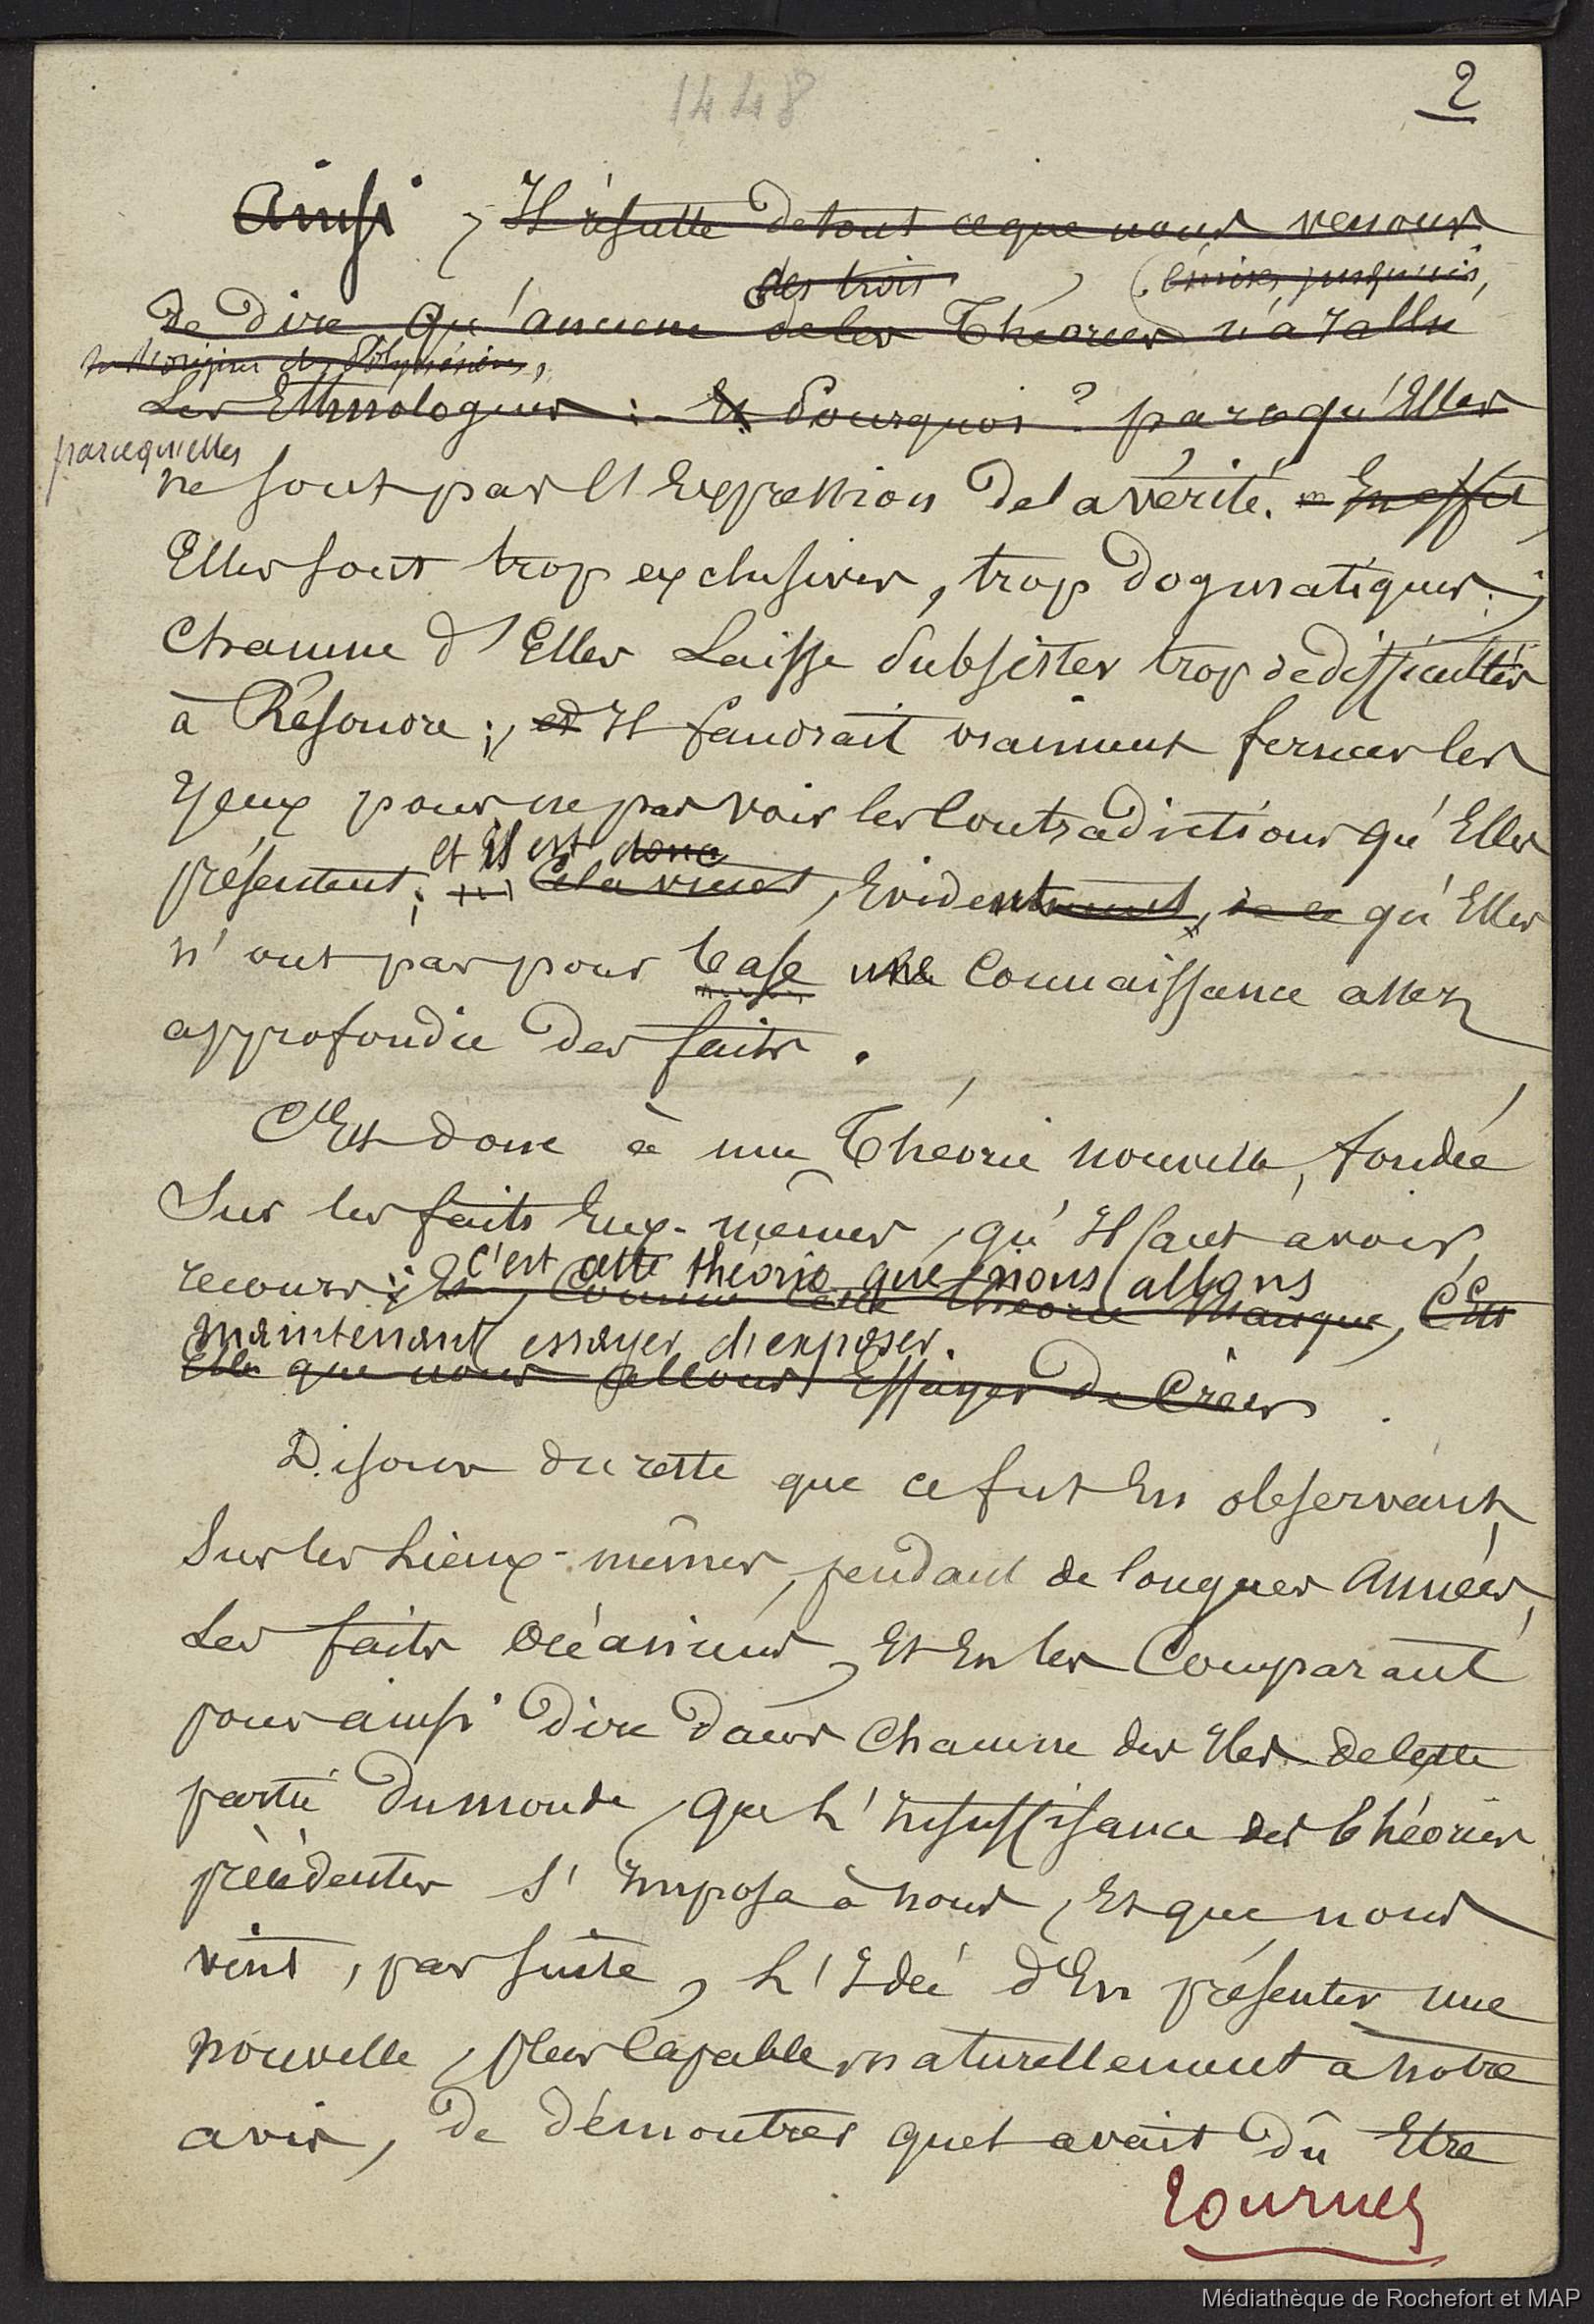 1448
2
Ainsi, Il résulte de tout ce que nous venons
des trois
émises jusqu'ici,
de dire, qu'aucune de les Théories n'a rallié
sur l'origine des Polynésiens,
Les Ethnologues : - Et Pourquoi ? parcequ'Elles
parcequ'elles
ne sont pas l'Expression de la vérité. - En effet
Elles sont trop exclusives, trop dogmatiques ;
Chacune d'Elles Laisse Subsister trop de difficultés
à Résoudre ; et Il faudrait vraiment fermer les
yeux pour ne pas voir les Contradictions qu'Elles
et Il est donc
présentent ; Cela vient, Evidemment, de ce qu'Elles
n'ont pas pour base une Connaissance assez
approfondie des faits.
C'Est donc à une Théorie nouvelle, fondée
Sur les faits Eux-mêmes, qu'Il faut avoir
c'est cette théorie que nous allons
recours ; Et, Comme Cette théorie manque, C'Est
maintenant essayer d'exposer.
Elle que nous allons Essayer de Créer.
Disons du reste que ce fut En observant
Sur les Lieux-mêmes, pendant de longues Années,
Les faits Océaniens, Et En les Comparant
pour ainsi dire dans Chacune des Iles de Cette
partie du monde, que L'Insuffisance des théories
précédentes s'Imposa à nous, Et que nous
vint, par suite, L'Idée d'En présenter une
nouvelle, plus Capable, naturellement à notre
avis, de démontrer quel avait dû Etre
Tournez
Médiathèque de Rochefort et MAP